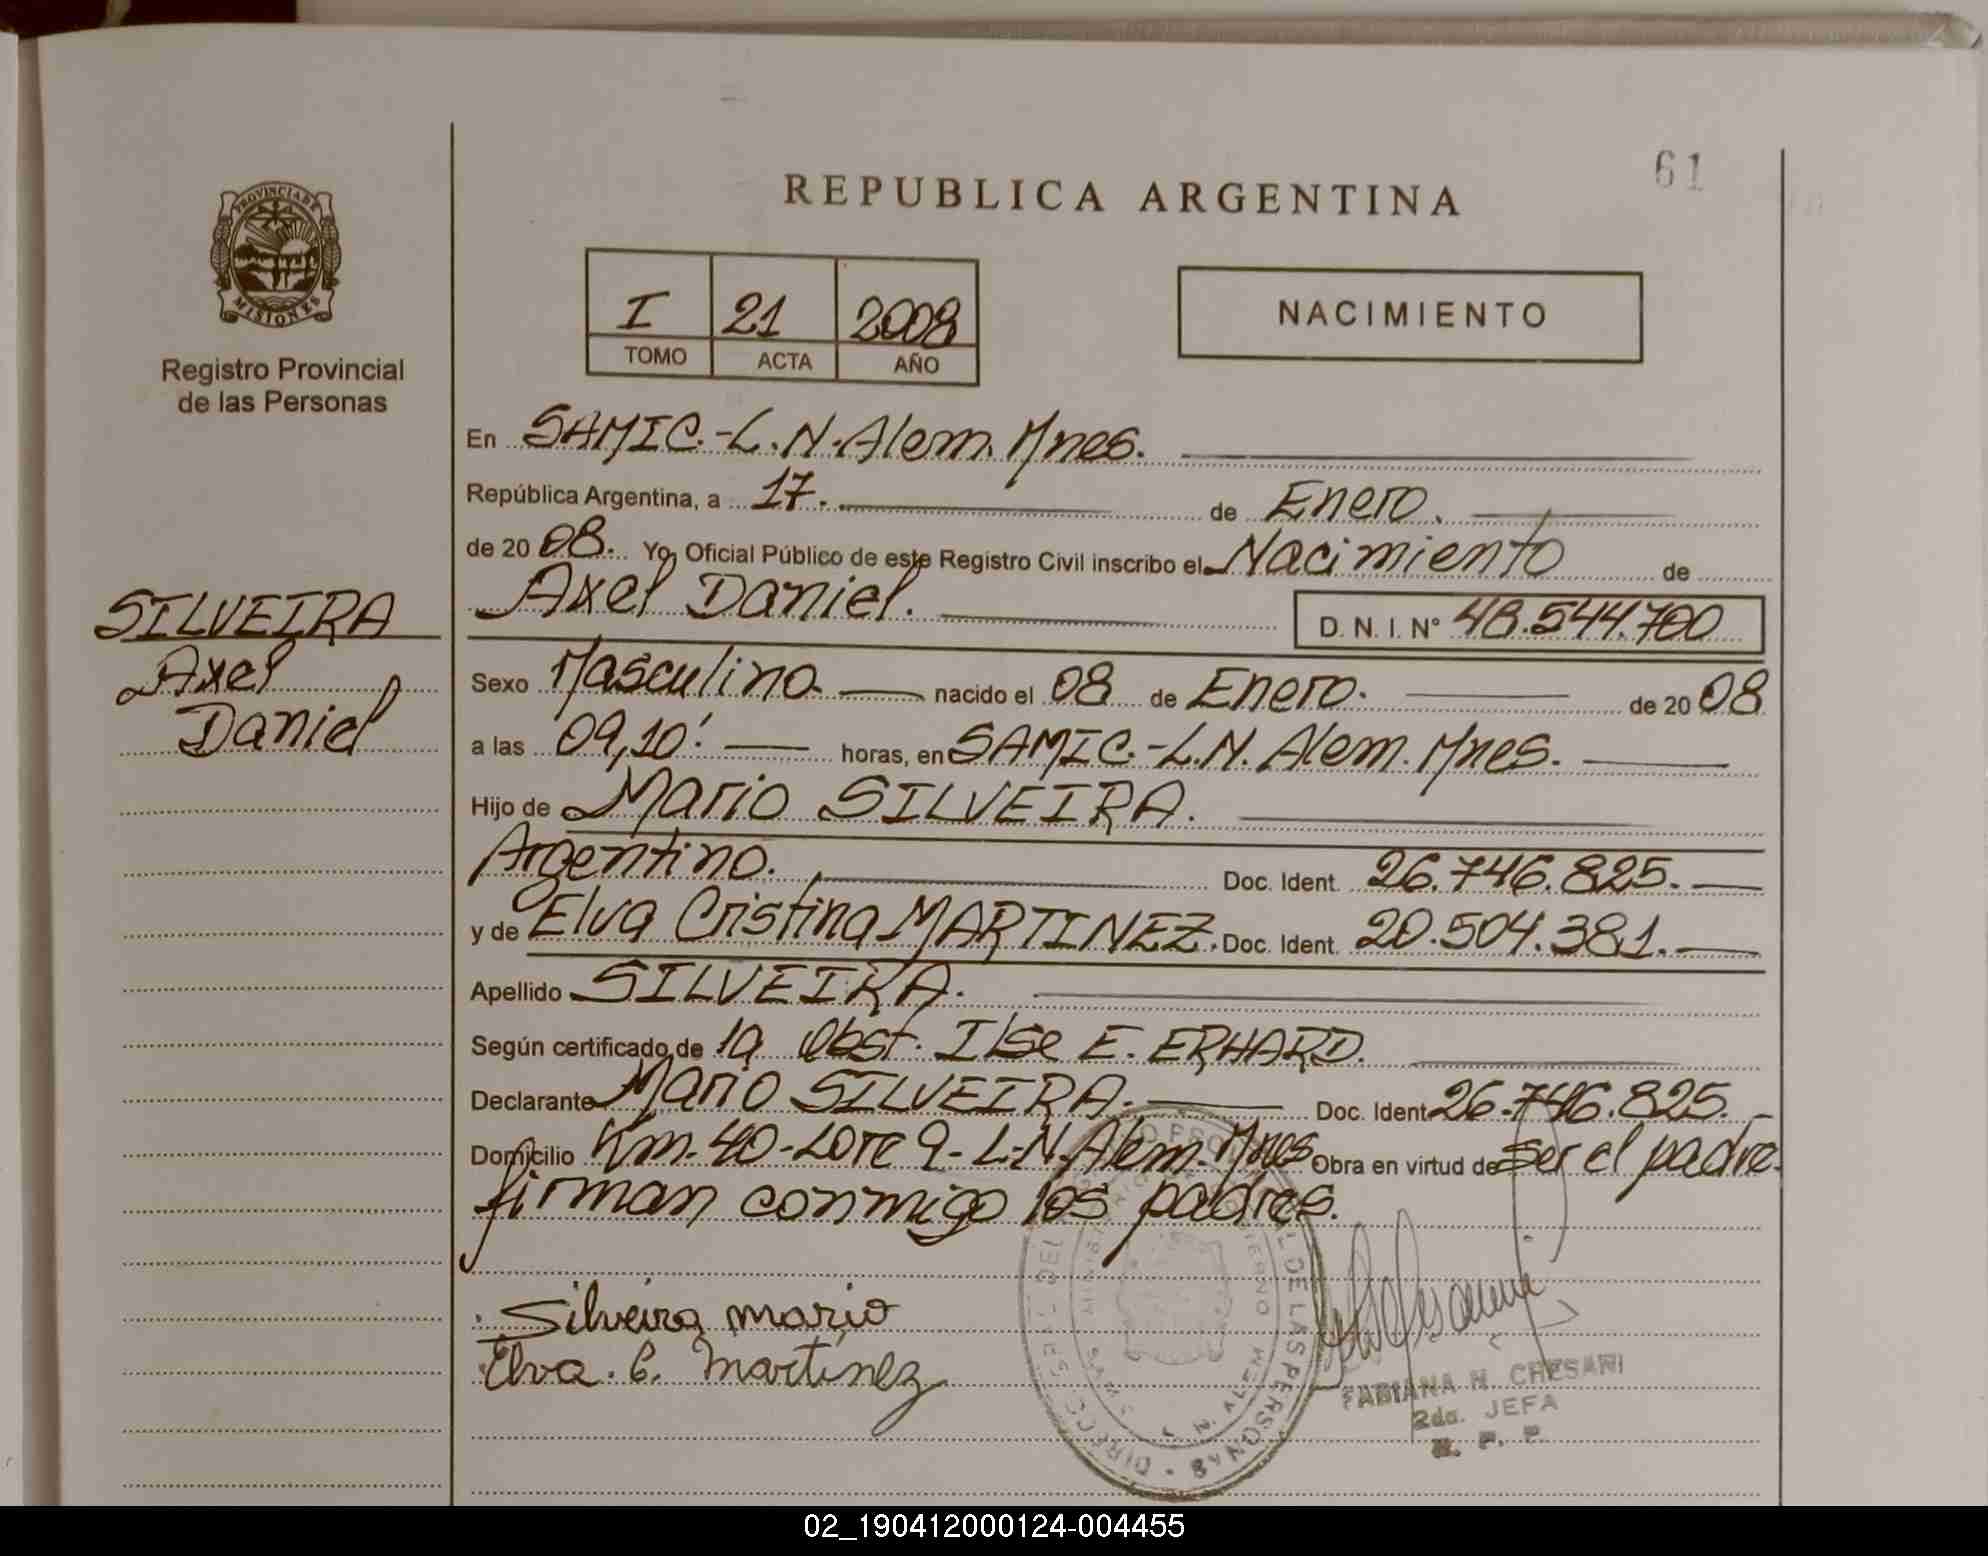 61
REPUBLICA ARGENTINA
PROVINCIA DE
MISIONES
Registro Provincial
de las Personas
I 21 2008
TOMO ACTA AÑO
NACIMIENTO
En SAMIC.-L.N.Alem.Mnes.
República Argentina, a 17. de Enero.
de 20 08. Yo, Oficial Público de este Registro Civil inscribo el Nacimiento de
Axel Daniel. D. N. I. N° 48.544.700
SILVEIRA
Axel
Daniel
Sexo Masculino nacido el 08 de Enero. de 20 08
a las 09,10' horas, en SAMIC.-L.N. Alem. Mnes.
Hijo de Mario SILVEIRA.
Argentino. Doc. Ident. 26.746.825.
y de Elva Cristina MARTINEZ. Doc. Ident. 20.504.381.
Apellido SILVEIRA.
Según certificado de la Obst. Ilse E. ERHARD.
Declarante Mario SILVEIRA. Doc. Ident 26.746.825.
Domicilio Km.40-Lote 9-L.N.Alem.Mnes Obra en virtud de ser el padre.
firman conmigo los padres.
Silveira mario
Elva. C. Martínez
FABIANA N. CHESANI
2da. JEFA
R. P. P.
02_190412000124-004455